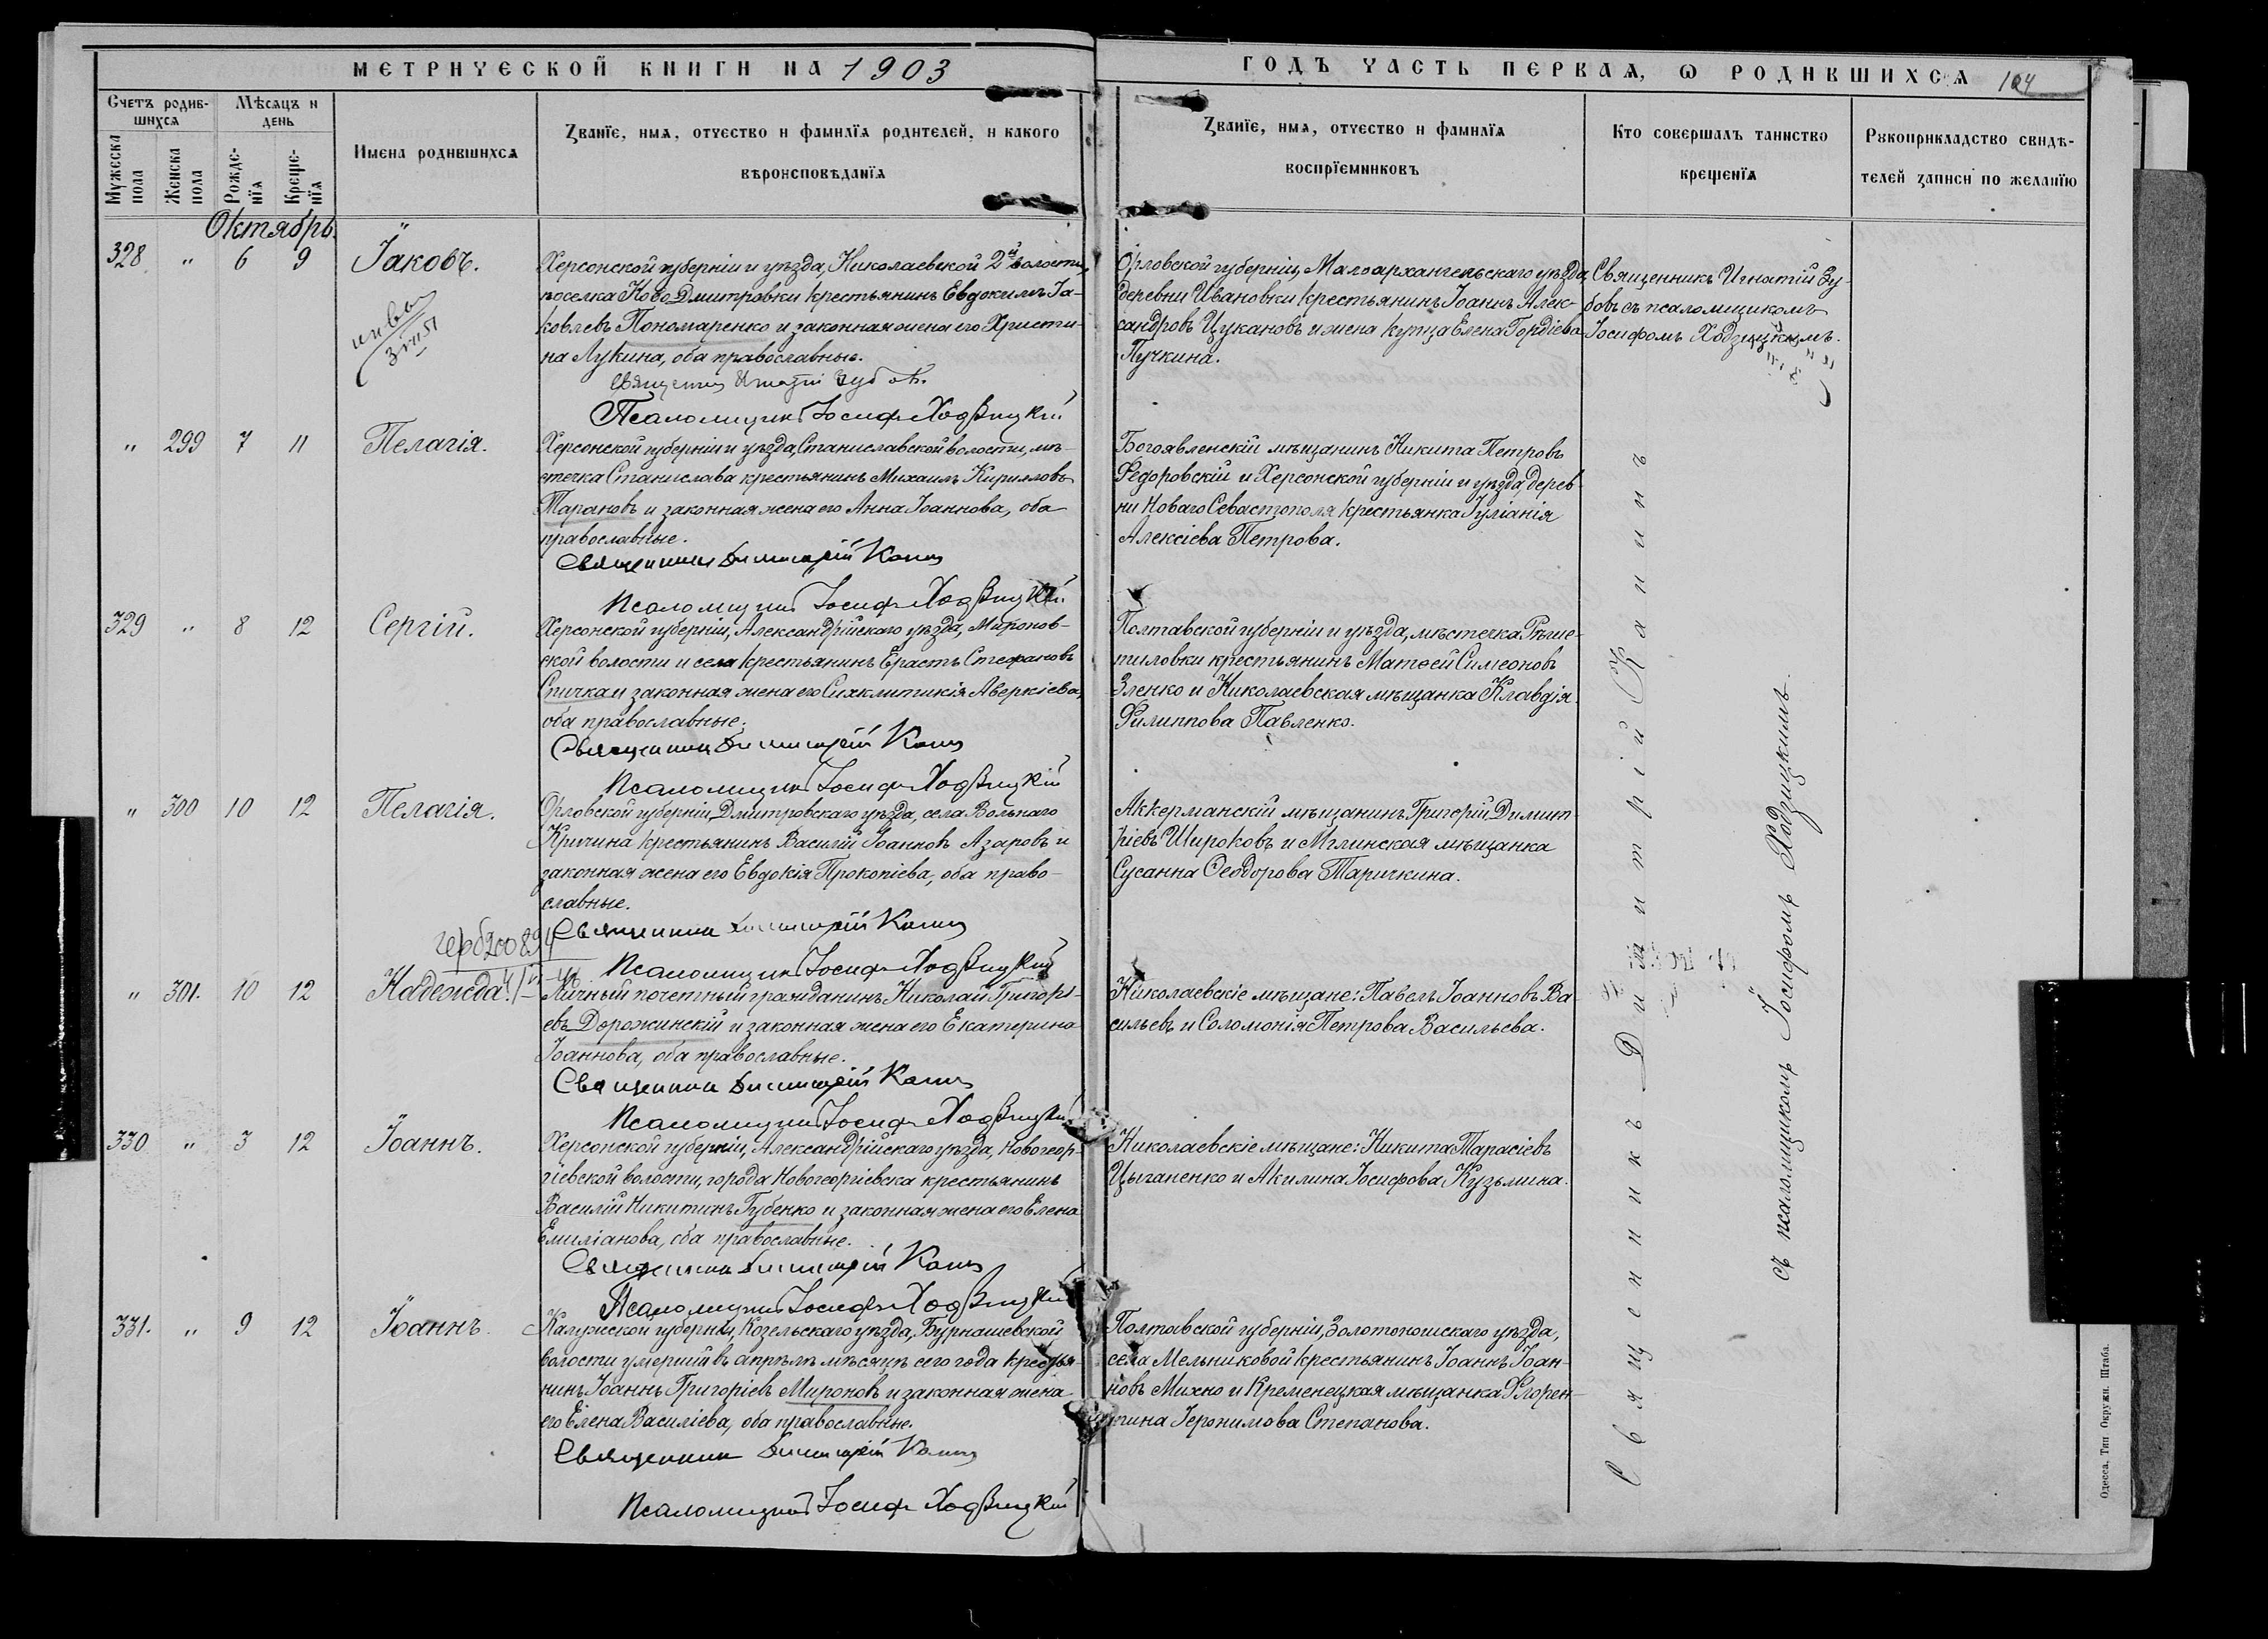 МЕТРИЧЕСКОЙ КНИГИ НА 1903
ГОДЪ ЧАСТЬ ПЕРВАЯ, Ѡ РОДИВШИХСЯ 104
Счетъ родив-
шихся
Мѣсяцъ и
день
Мужеска
пола
Женска
пола
Рожде-
нїя
Креще-
нїя
Имена родившихся
Званїе, имя, отчество и фамилїя родителей, и какого
вѣроисповѣданїя
Званїе, имя, отчество и фамилїя
воспрїемниковъ
Кто совершалъ таинство
крещенїя
Рукоприкладство свидѣ-
телей записи по желанїю
Октябрь.
328 " 6 9 Іаковъ.
Херсонской губерніи и уѣзда, Николаевской 2й волости,
поселка Ново Дмитровки крестьянинъ Евдокимъ Іа-
ковлевъ Пономаренко и законная жена его Христи-
на Лукина, оба православные.
Священникъ Игнатій Зубовъ.
Псаломщикъ Іосифъ Ходзицкій
Орловской губерніи, Малоархангельскаго уѣзда,
деревни Ивановки крестьянинъ Іоаннъ Алек-
сандровъ Цукановъ и жена купца Елена Гордіева
Пучкина.
Священникъ Игнатій Зу-
бовъ съ псаломщикомъ
Іосифомъ Ходзицкимъ.
" 299 7 11 Пелагія.
Херсонской губерніи и уѣзда, Станиславской волости, мѣ-
стечка Станислава крестьянинъ Михаилъ Кирилловъ
Тарановъ и законная жена его Анна Іоаннова, оба
православные.
Священникъ Димитрій Канинъ
Псаломщикъ Іосифъ Ходзицкій
Богоявленскій мѣщанинъ Никита Петровъ
Федоровскій и Херсонской губерніи и уѣзда, дерев-
ни Новаго Севастополя крестьянка Іуліанія
Алексіева Петрова.
329 " 8 12 Сергій.
Херсонской губерніи, Александрійскаго уѣзда, Миронов-
ской волости и села крестьянинъ Ерастъ Стефановъ
Спичка и законная жена его Сихклитикія Аверкіева,
оба православные.
Священникъ Димитрій Канинъ
Псаломщикъ Іосифъ Ходзицкій
Полтавской губерніи и уѣзда, мѣстечка Рѣше-
тиловки крестьянинъ Матѳей Симеоновъ
Зленко и Николаевская мѣщанка Клавдія
Филиппова Павленко.
" 300 10 12 Пелагія.
Орловской губерніи, Дмитровскаго уѣзда, села Вольнаго
Кричина крестьянинъ Василій Іоанновъ Азаровъ и
законная жена его Евдокія Прокопіева, оба право-
славные.
Священникъ Димитрій Канинъ
Псаломщикъ Іосифъ Ходзицкій
Аккерманскій мѣщанинъ Григорій Димит-
ріевъ Широковъ и Мглинская мѣщанка
Сусанна Ѳеодорова Таричкина.
" 301. 10 12 Надежда.
Личный почетный гражданинъ Николай Григорі-
евъ Дорожинскій и законная жена его Екатерина
Іоаннова, оба православные.
Священникъ Димитрій Канинъ
Псаломщикъ Іосифъ Ходзицкій
Николаевскіе мѣщане: Павелъ Іоанновъ Ва-
сильевъ и Соломонія Петрова Васильева.
330 " 3 12 Іоаннъ.
Херсонской губерніи, Александрійскаго уѣзда, Новогеор-
гіевской волости, города Новогеоргіевска крестьянинъ
Василій Никитинъ Губенко и законная жена его Елена
Емиліанова, оба православные.
Священникъ Димитрій Канинъ
Псаломщикъ Іосифъ Ходзицкій
Николаевскіе мѣщане: Никита Тарасіевъ
Цыганенко и Акилина Іосифова Кузьмина.
331. " 9 12 Іоаннъ.
Калужской губерніи, Козельскаго уѣзда, Бурнашевской
волости умершій въ апрѣлѣ мѣсяцѣ сего года крестья-
нинъ Іоаннъ Григоріевъ Мироновъ и законная жена
его Елена Василіева, оба православные.
Священникъ Димитрій Канинъ
Псаломщикъ Іосифъ Ходзицкій
Полтавской губерніи, Золотоношскаго уѣзда,
села Мельниковой крестьянинъ Іоаннъ Іоан-
новъ Михно и Кременецкая мѣщанка Флорен-
тина Іеронимова Степанова.
Священникъ Димитрій Канинъ
съ псаломщикомъ Іосифомъ Ходзицкимъ.
Одесса. Тип Окружн. Штаба.